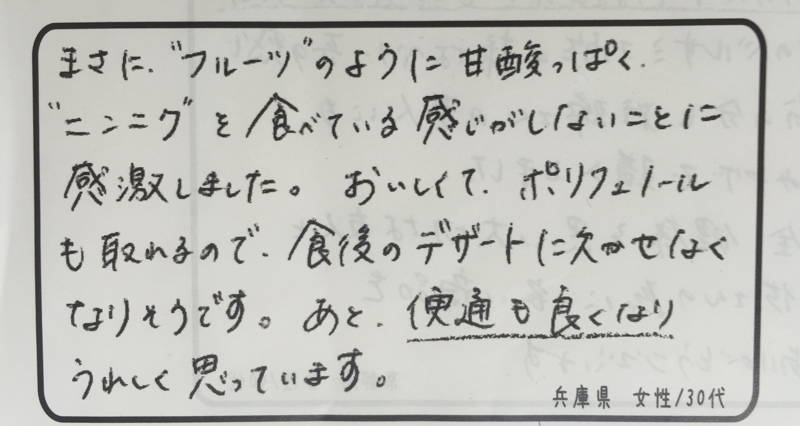 まさに、"フルーツ"のように甘酸っぱく、
"ニンニク"を食べている感じがしないことに
感激しました。 おいしくて、ポリフェノール
も取れるので、食後のデザートに欠かせなく
なりそうです。 あと、便通も良くなり
うれしく思っています。
兵庫県 女性/30代